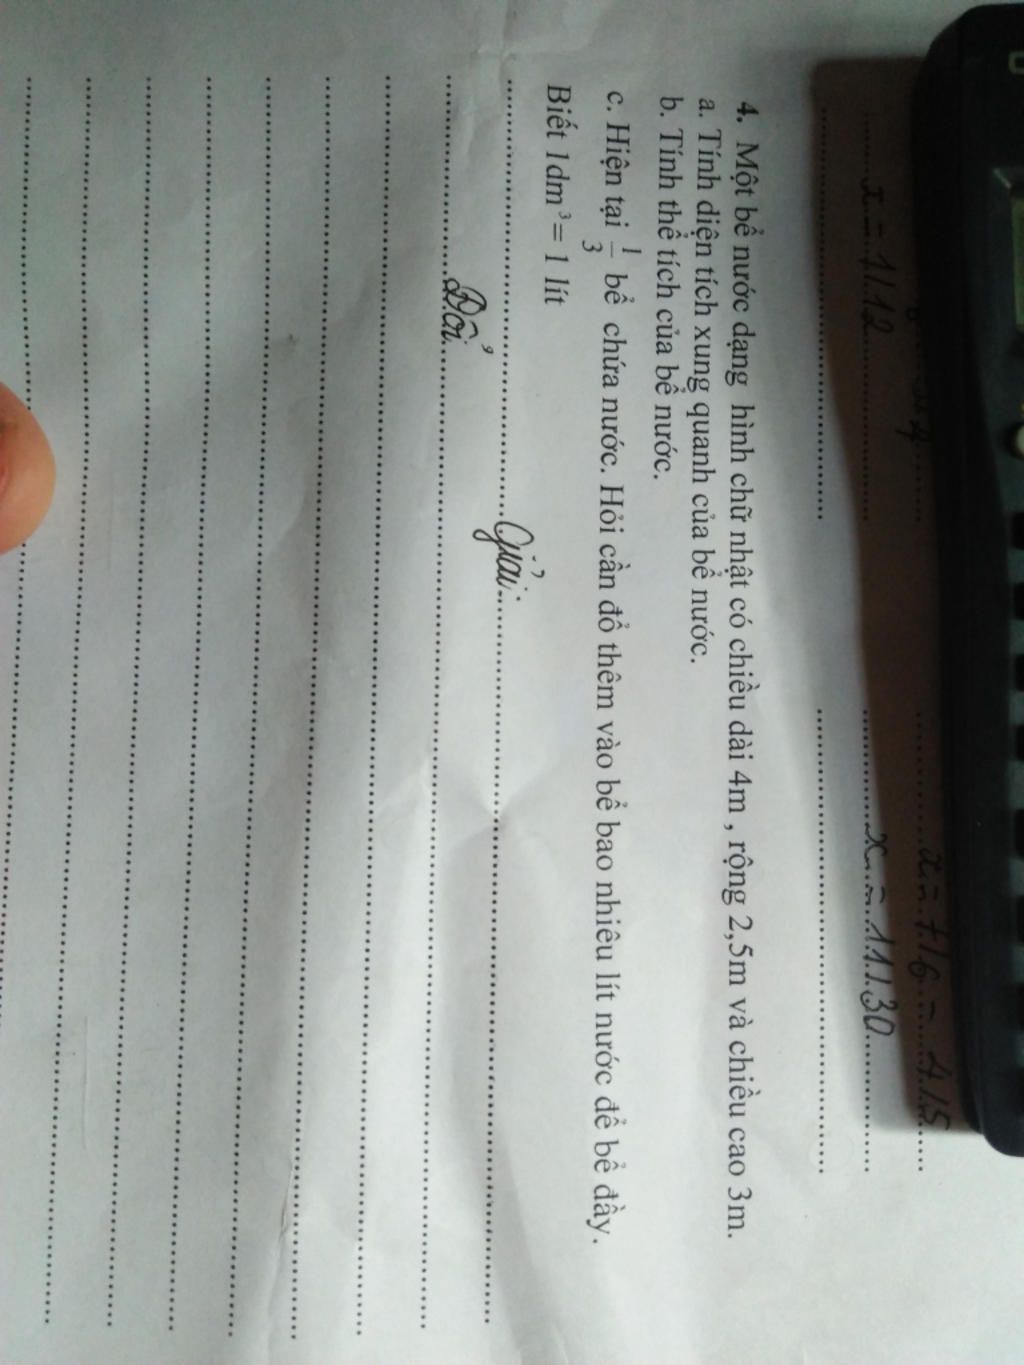 x = 1/12
x = 7/6 - 4/5
x = 11/30
4. Một bể nước dạng hình chữ nhật có chiều dài 4m , rộng 2,5m và chiều cao 3m.
a. Tính diện tích xung quanh của bể nước.
b. Tính thể tích của bể nước.
c. Hiện tại 1/3 bể chứa nước. Hỏi cần đổ thêm vào bể bao nhiêu lít nước để bể đầy.
Biết 1dm³ = 1 lít
Giải:
Đổi